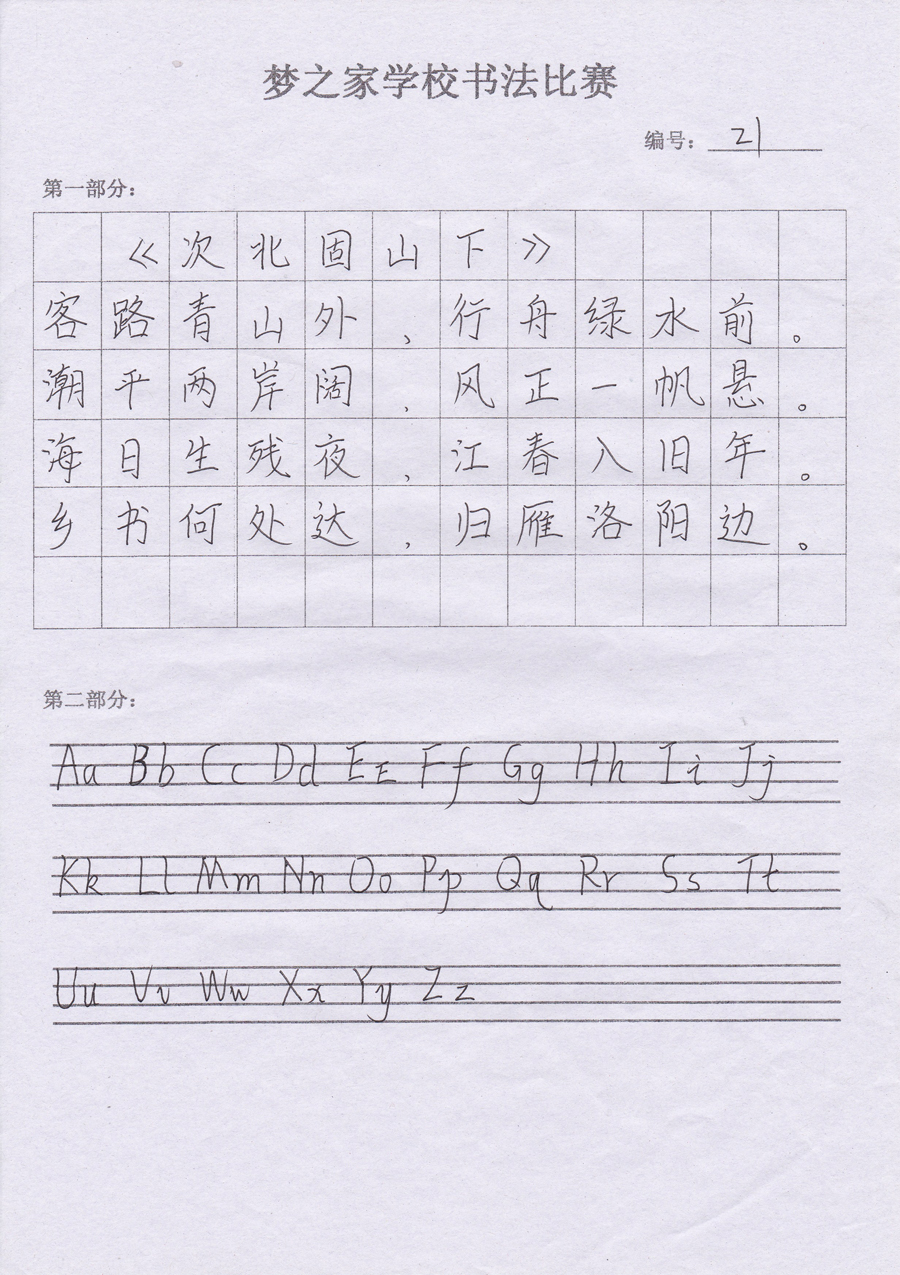 梦之家学校书法比赛
编号：21
第一部分：
《次北固山下》
客路青山外，行舟绿水前。
潮平两岸阔，风正一帆悬。
海日生残夜，江春入旧年。
乡书何处达，归雁洛阳边。
第二部分：
Aa Bb Cc Dd EE Ff Gg Hh Ii Jj
Kk Ll Mm Nn Oo Pp Qq Rr Ss Tt
Uu Vv Ww Xx Yy Zz